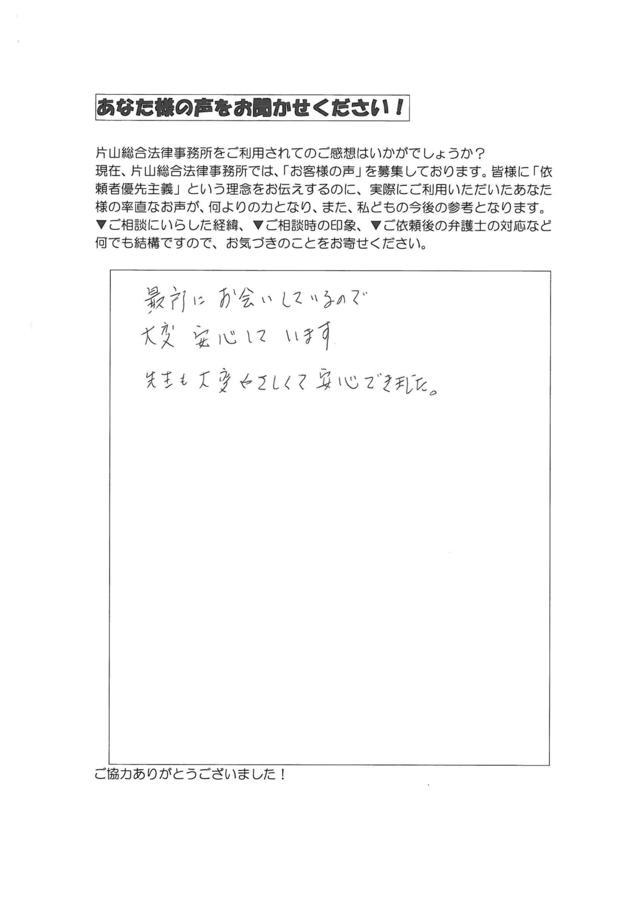 あなた様の声をお聞かせください！
片山総合法律事務所をご利用されてのご感想はいかがでしょうか？
現在、片山総合法律事務所では、「お客様の声」を募集しております。皆様に「依
頼者優先主義」という理念をお伝えするのに、実際にご利用いただいたあなた
様の率直なお声が、何よりの力となり、また、私どもの今後の参考となります。
▼ご相談にいらした経緯、▼ご相談時の印象、▼ご依頼後の弁護士の対応など
何でも結構ですので、お気づきのことをお寄せください。
最初に お会いしているので
大変 安心して います
先生も大変やさしくて安心できました。
ご協力ありがとうございました！